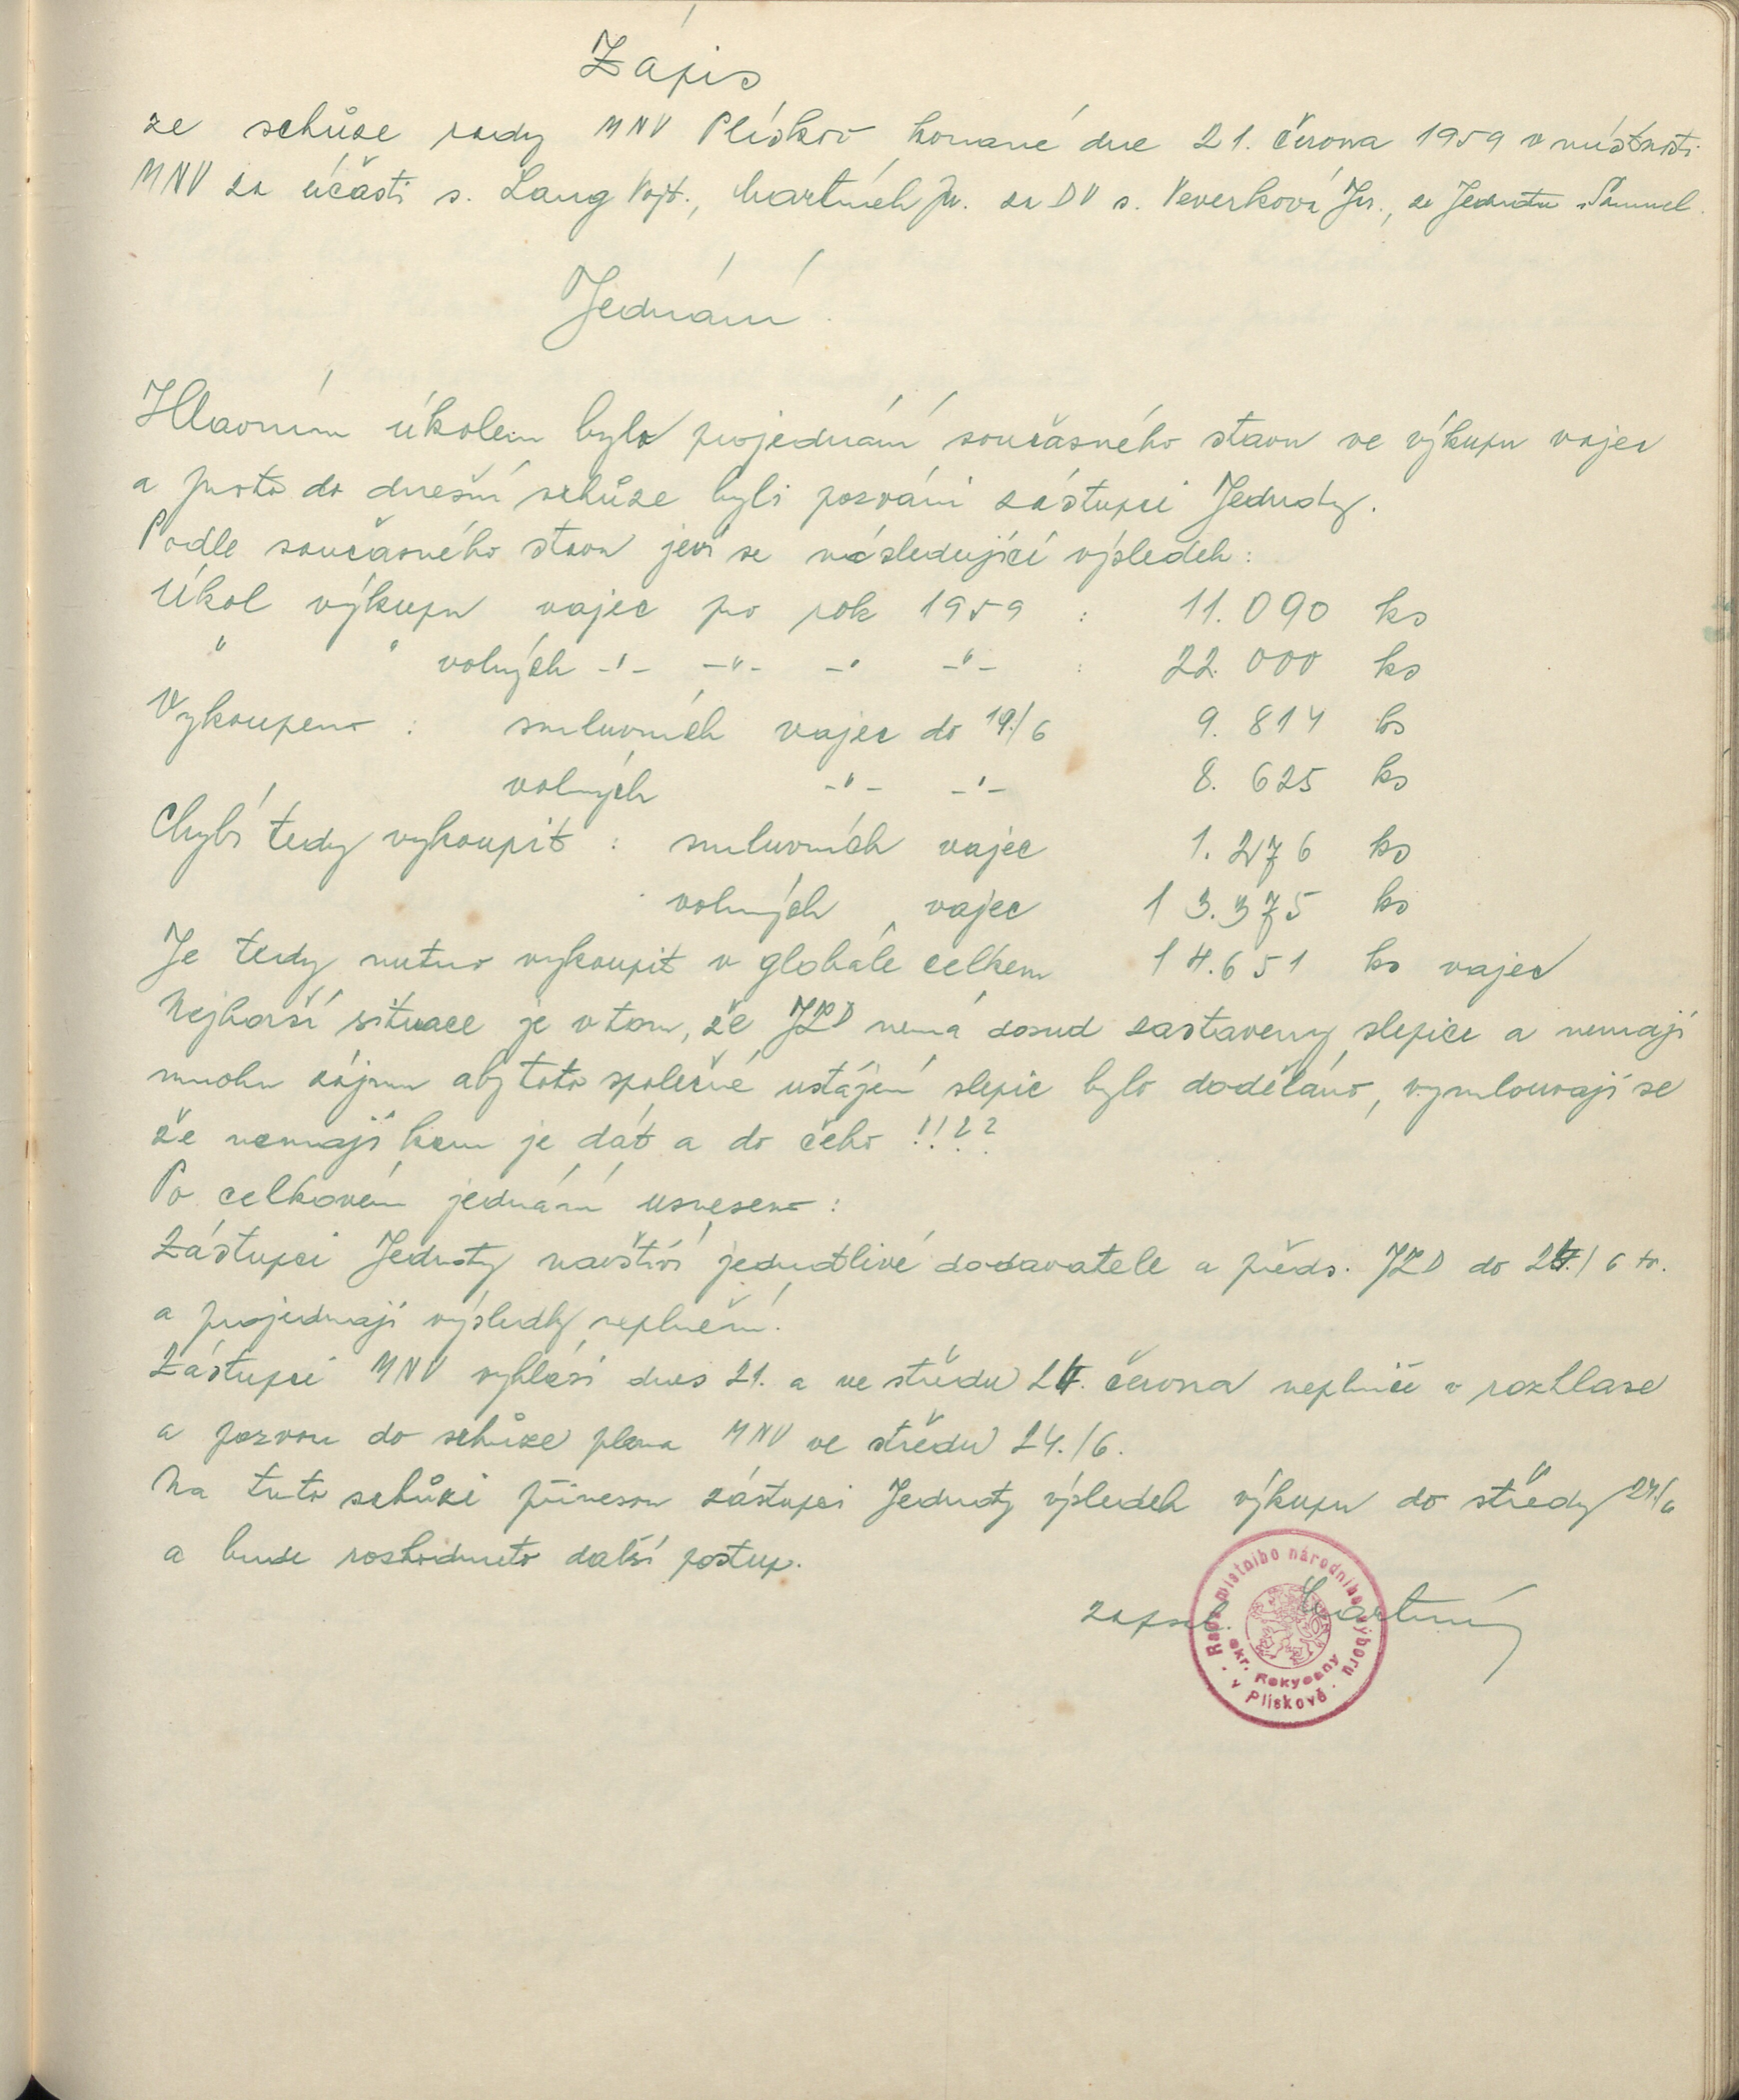 Zápis
ze schůze rady MNV Plískov konané dne 21. června 1959 v místnosti
MNV za účasti s. Lang Vojt., Martínek za DV s. Veverková, za Jednotu
Jednání.
Hlavním úkolem bylo projednání současného stavu ve výkupu vajec
a proto do dnešní schůze byli pozváni zástupci Jednoty.
Podle současného stavu jeví se následující výsledek:
Úkol výkupu vajec pro rok 1959 : 11.090 ks
" " volných -"- -"- -"- -"- : 22.000 ks
Vykoupeno : smluvních vajec do 19./6 9.814 ks
volných -"- -"- 8.625 ks
Chybí tedy vykoupit : smluvních vajec 1.276 ks
volných vajec 13.375 ks
Je tedy nutno vykoupit v globále celkem 14.651 ks vajec
Nejhorší situace je v tom, že JZD nemá dosud zastaveny slepice a nemají
mnoho zájmu aby toto společné ustájení slepic bylo doděláno, vymlouvají se
že nemají kam je dát a do čeho !!??
Po celkovém jednání usneseno:
Zástupci Jednoty navštíví jednotlivé dodavatele a předs. JZD do 24./6 tr.
a projednají výsledky neplnění.
Zástupci MNV vyhlásí dnes 21. a ve středu 24. června neplniče v rozhlase
a pozvou do schůze plena MNV ve středu 24./6.
Na tuto schůzi přinesou zástupci Jednoty výsledek výkupu do středy 24/6
a bude rozhodnuto další postup.
zapsal:
Rada místního národního výboru
okr. Rokycany
v Plískově